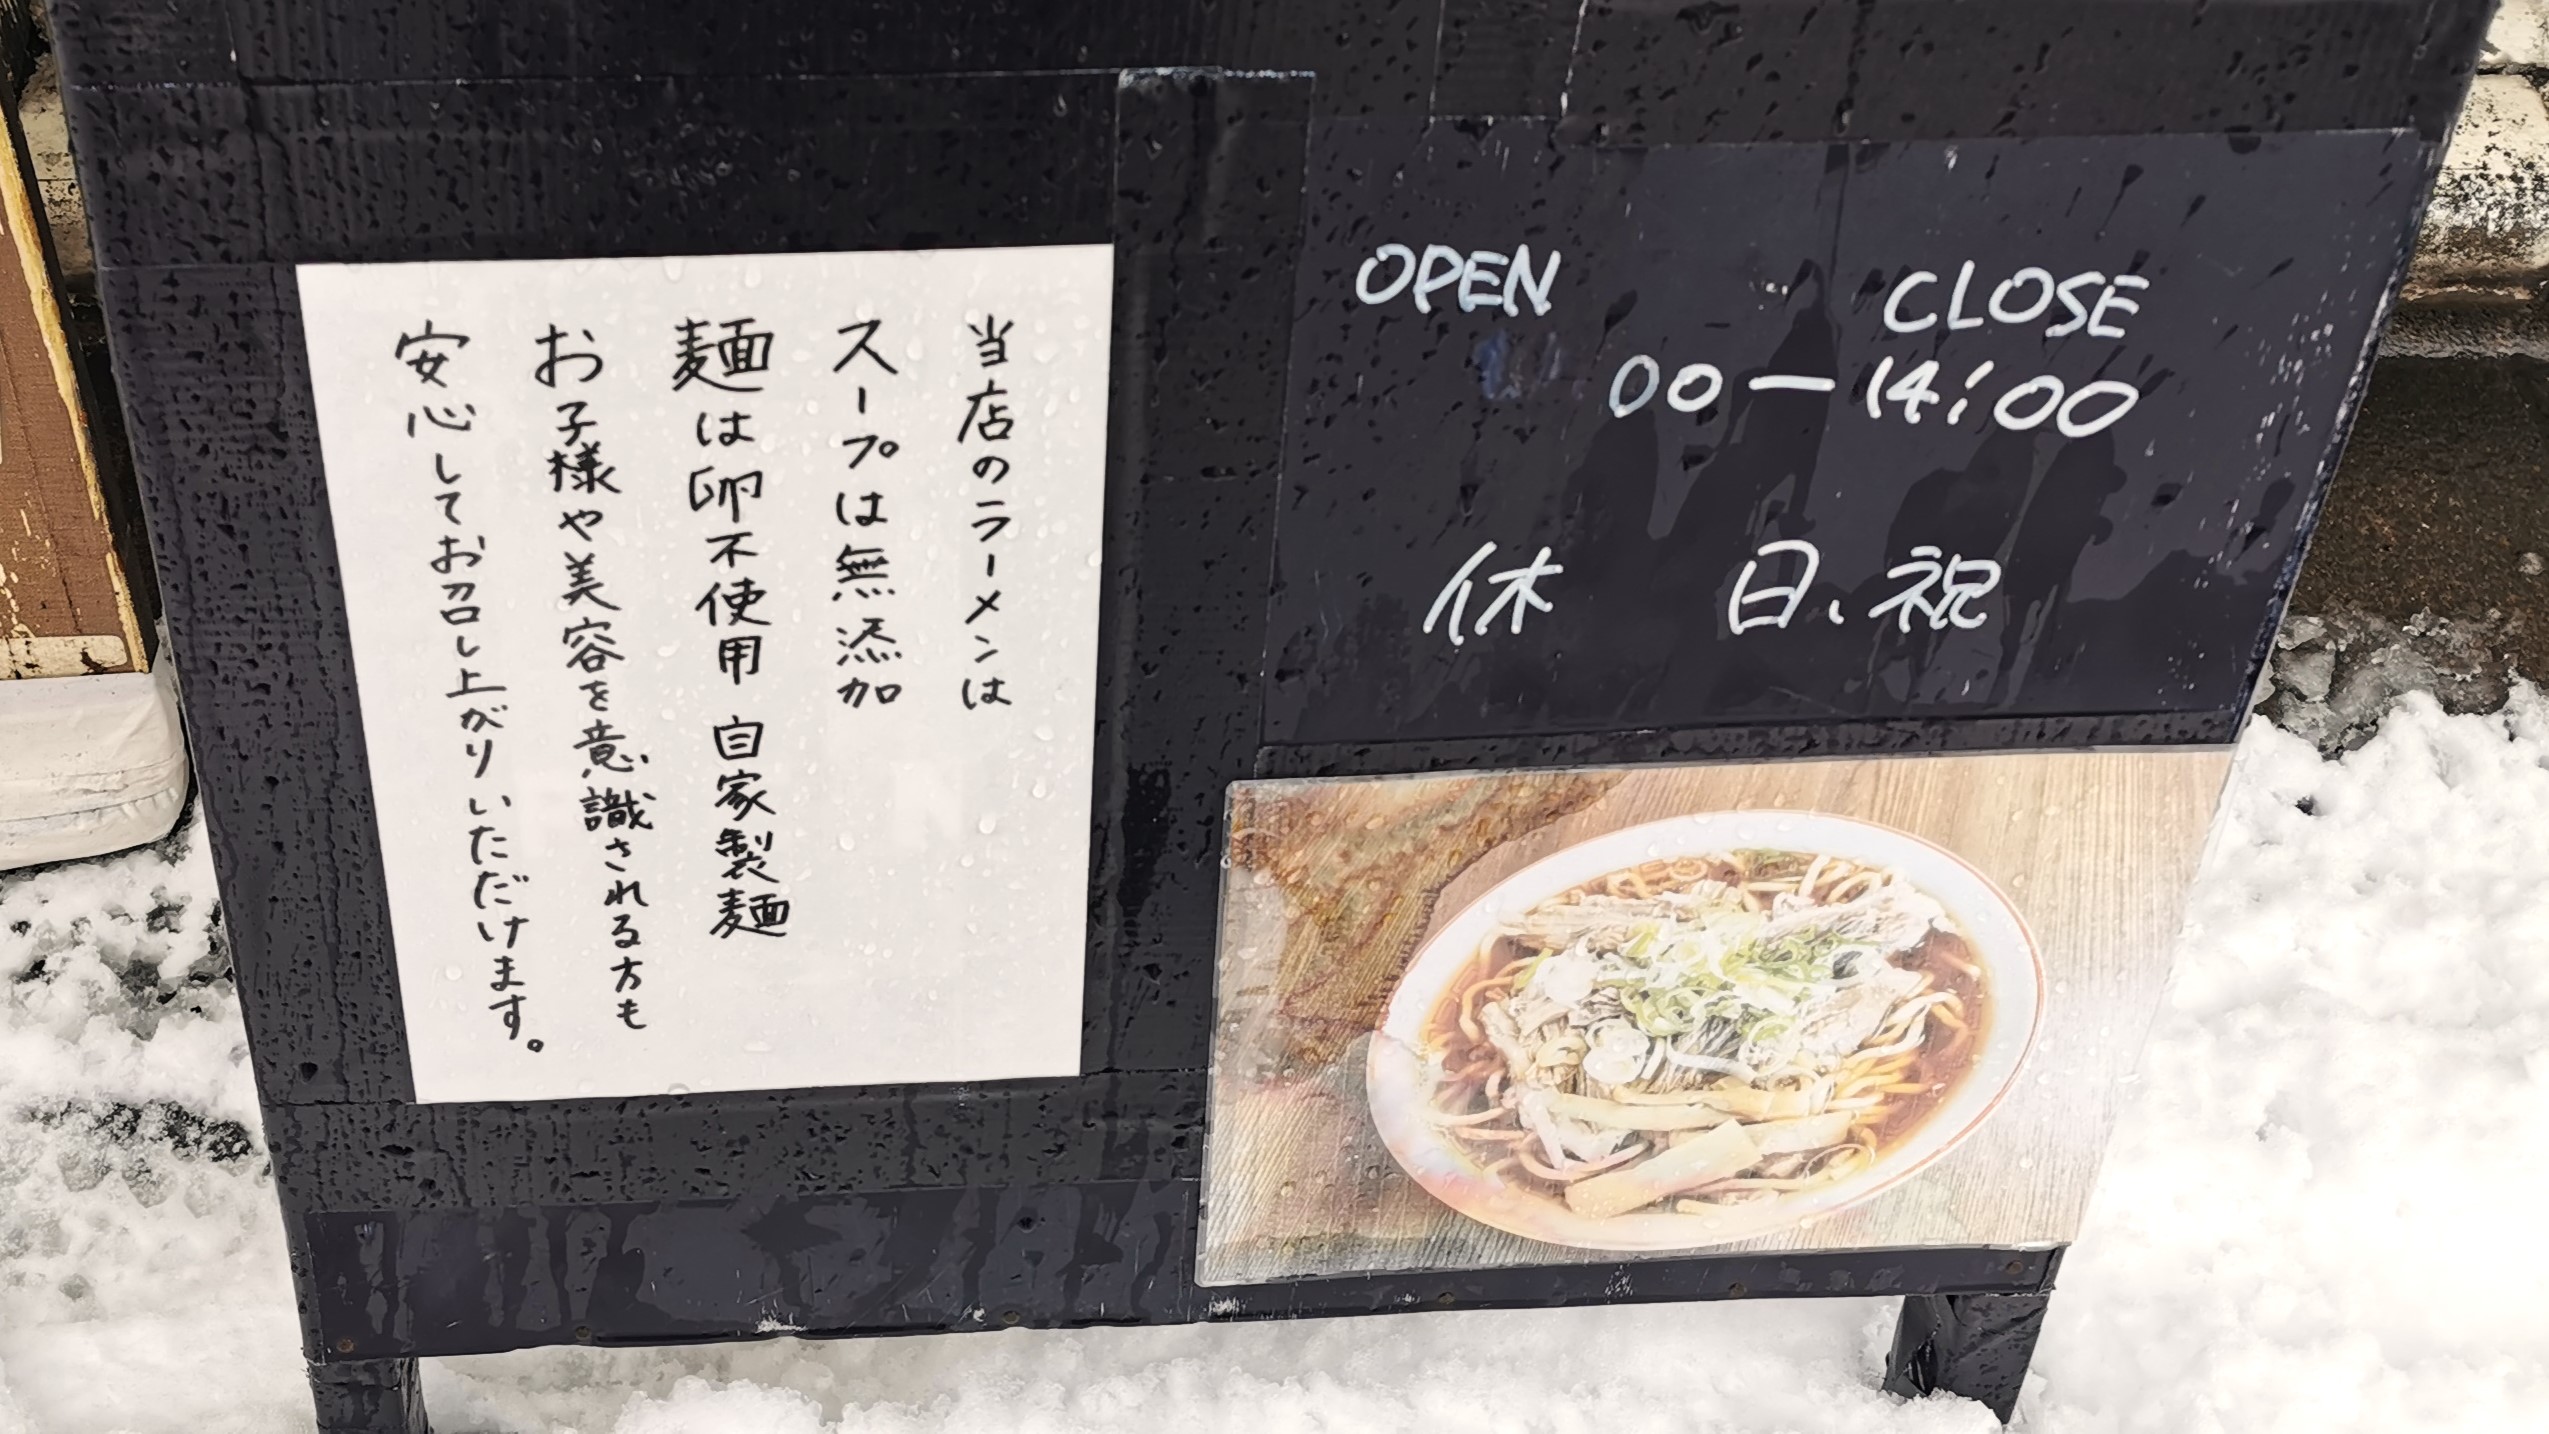 当店のラーメンは
スープは無添加
麺は卵不使用 自家製麺
お子様や美容を意識される方も
安心してお召し上がりいただけます。
OPEN CLOSE
00ー14:00
休 日、祝